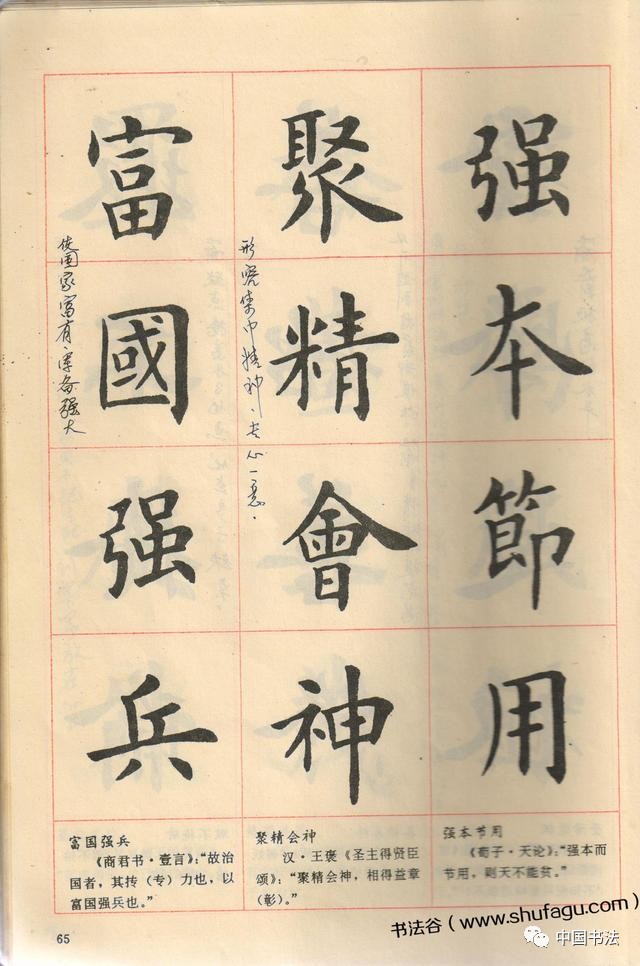 强本節用
聚精會神
富國强兵
形容集中精神、专心一意.
使国家富有、军备强大
富国强兵
《商君书·壹言》：“故治
国者，其抟（专）力也，以
富国强兵也。”
聚精会神
汉·王褒《圣主得贤臣
颂》：“聚精会神，相得益章
（彰）。”
强本节用
《荀子·天论》：“强本而
节用，则天不能贫。”
65
书法谷（www.shufagu.com）
中国书法